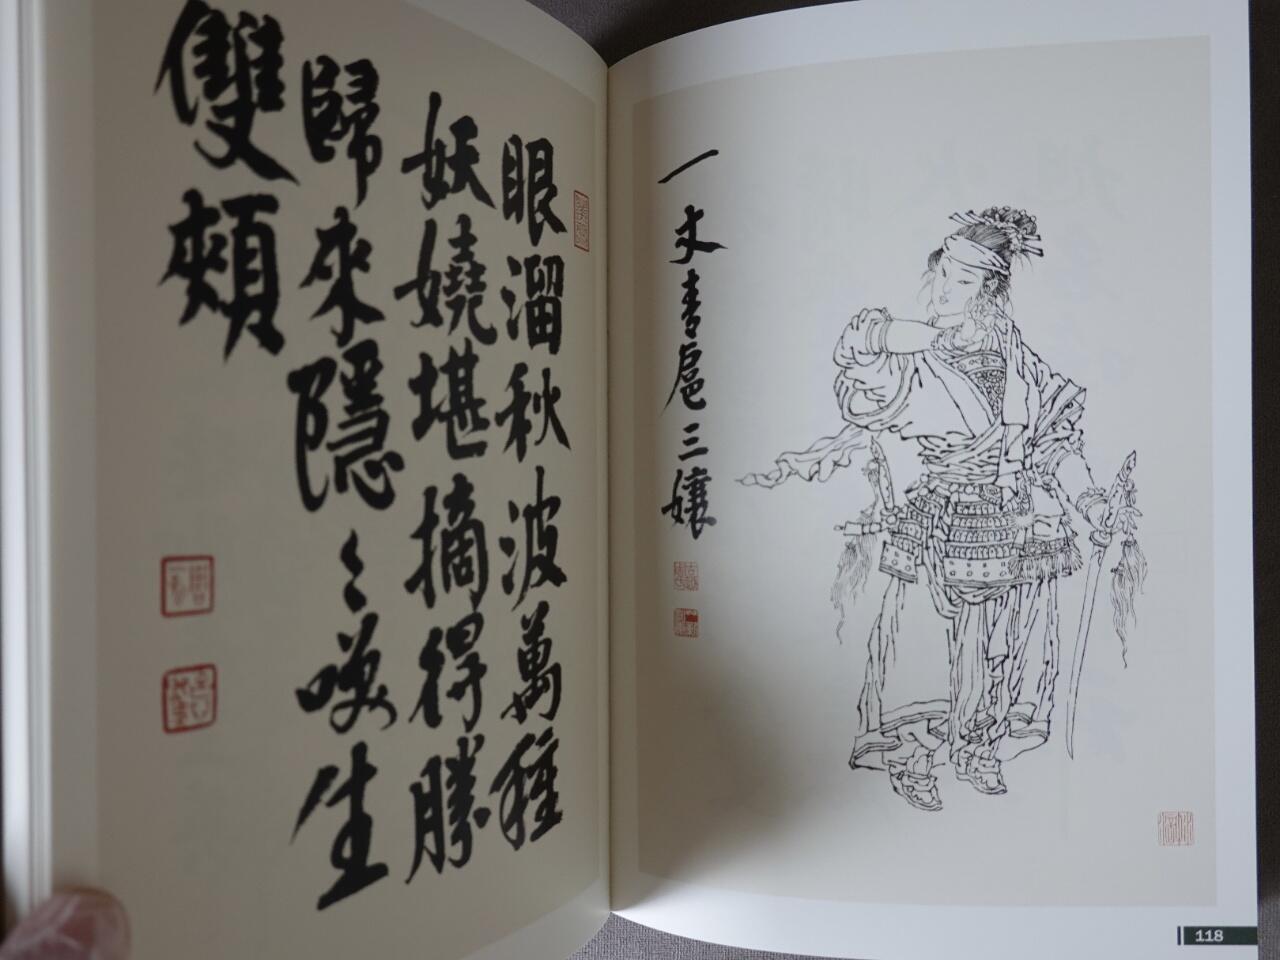 眼溜秋波萬種
妖嬈堪摘得勝
歸來隱〻喚生
雙頰
一丈青扈三孃
118